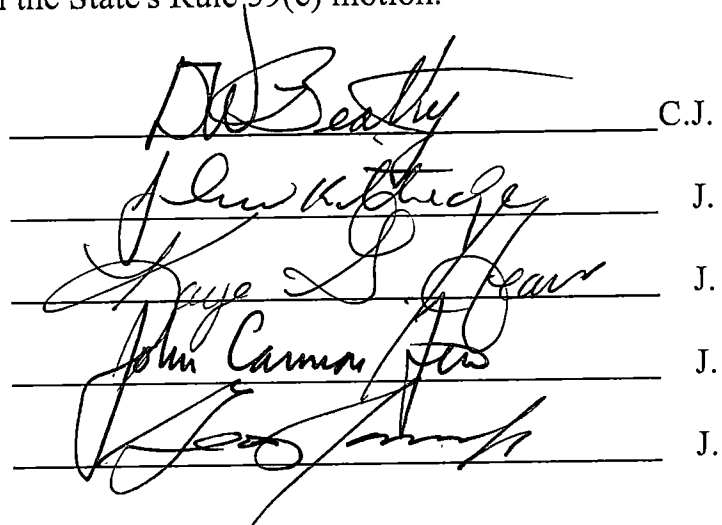 the State's Rule 59(e) motion.
Beatty C.J.
John Kittredge J.
Kaye G. Hearn J.
John Cannon Few J.
J.